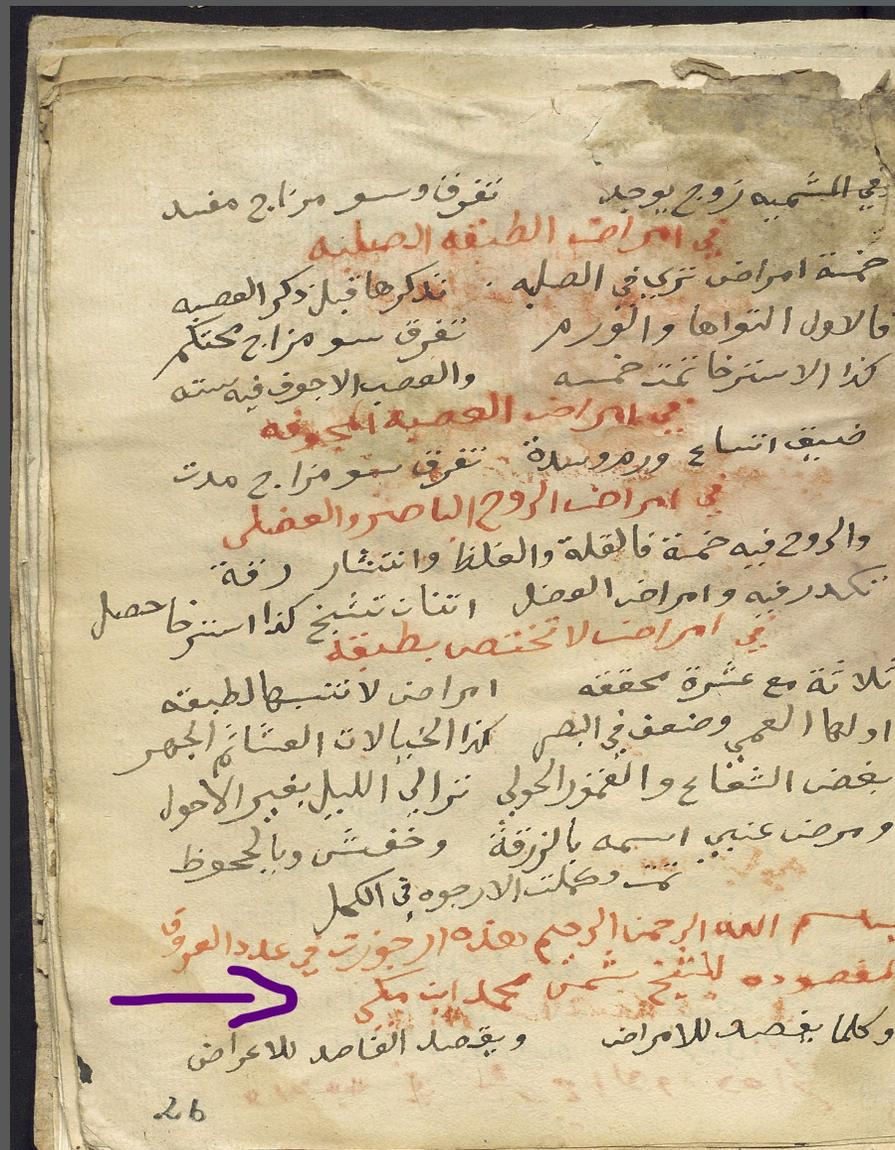 في المشميه زوج يوجد تفرق وسو مزاج مفسد
في امراض الطبقه الصلبيه
خمسة امراض تري في الصلبه نذكرها قبل ذكر العصبه
فالاول التواها والتورم تفرق سو مزاج محتكم
كذا الاسترخا تمت خمسه والعصب الاجوف فيه سته
في امراض العصبه المجوفه
ضيق اتساع ورم وسدة تفرق سو مزاج مدت
في امراض الروح الباصر والعضلي
والروح فيه خمسة فالقلة والغلظ وانتشار رقة
تكدر فيه وامراض العضل اثنان تشنج كذا استرخا حصل
في امراض لا تختص بطبقه
ثلاثة مع عشرة محققه امراض لا تنسبها لطبقه
اولها العمي وضعف في البصر كذا الخيالات العشا ثم الجهر
بغض الشعاع والقمور الحولي تزالي الليل بغير الاحول
ومرض عنبي اسمه بالزرقة وخفش وبالجحوظ
تمت وكملت الارجوه في الكحل
بسم الله الرحمن الرحيم هذه ارجوزت في عدد العروق
المقصوده للشيخ شمس محمد ابن مكي
وكلما يفصد للامراض ويقصد الفاصد للاعراض
26